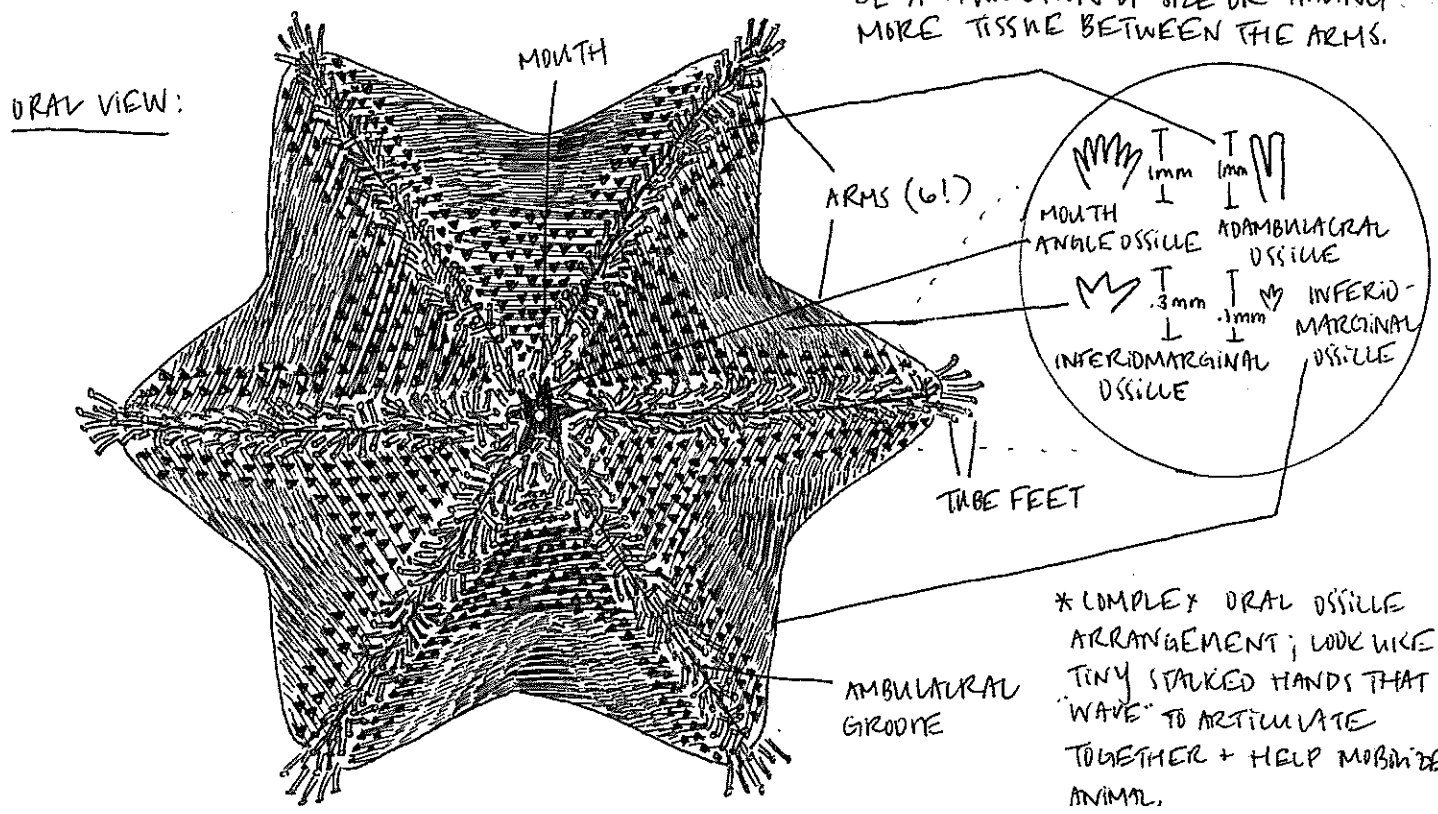 MORE TISSUE BETWEEN THE ARMS.
MOUTH
ORAL VIEW:
ARMS (6!)
1mm
1mm
MOUTH
ANGLE OSSILLE
ADAMBULACRAL
OSSILLE
.3mm
.1mm
INFERIO-
MARGINAL
OSSILLE
INFERIOMARGINAL
OSSILLE
TUBE FEET
AMBULACRAL
GROOVE
* COMPLEX ORAL OSSILLE
ARRANGEMENT; LOOK LIKE
TINY STALKED HANDS THAT
"WAVE" TO ARTICULATE
TOGETHER + HELP MOBILIZE
ANIMAL.